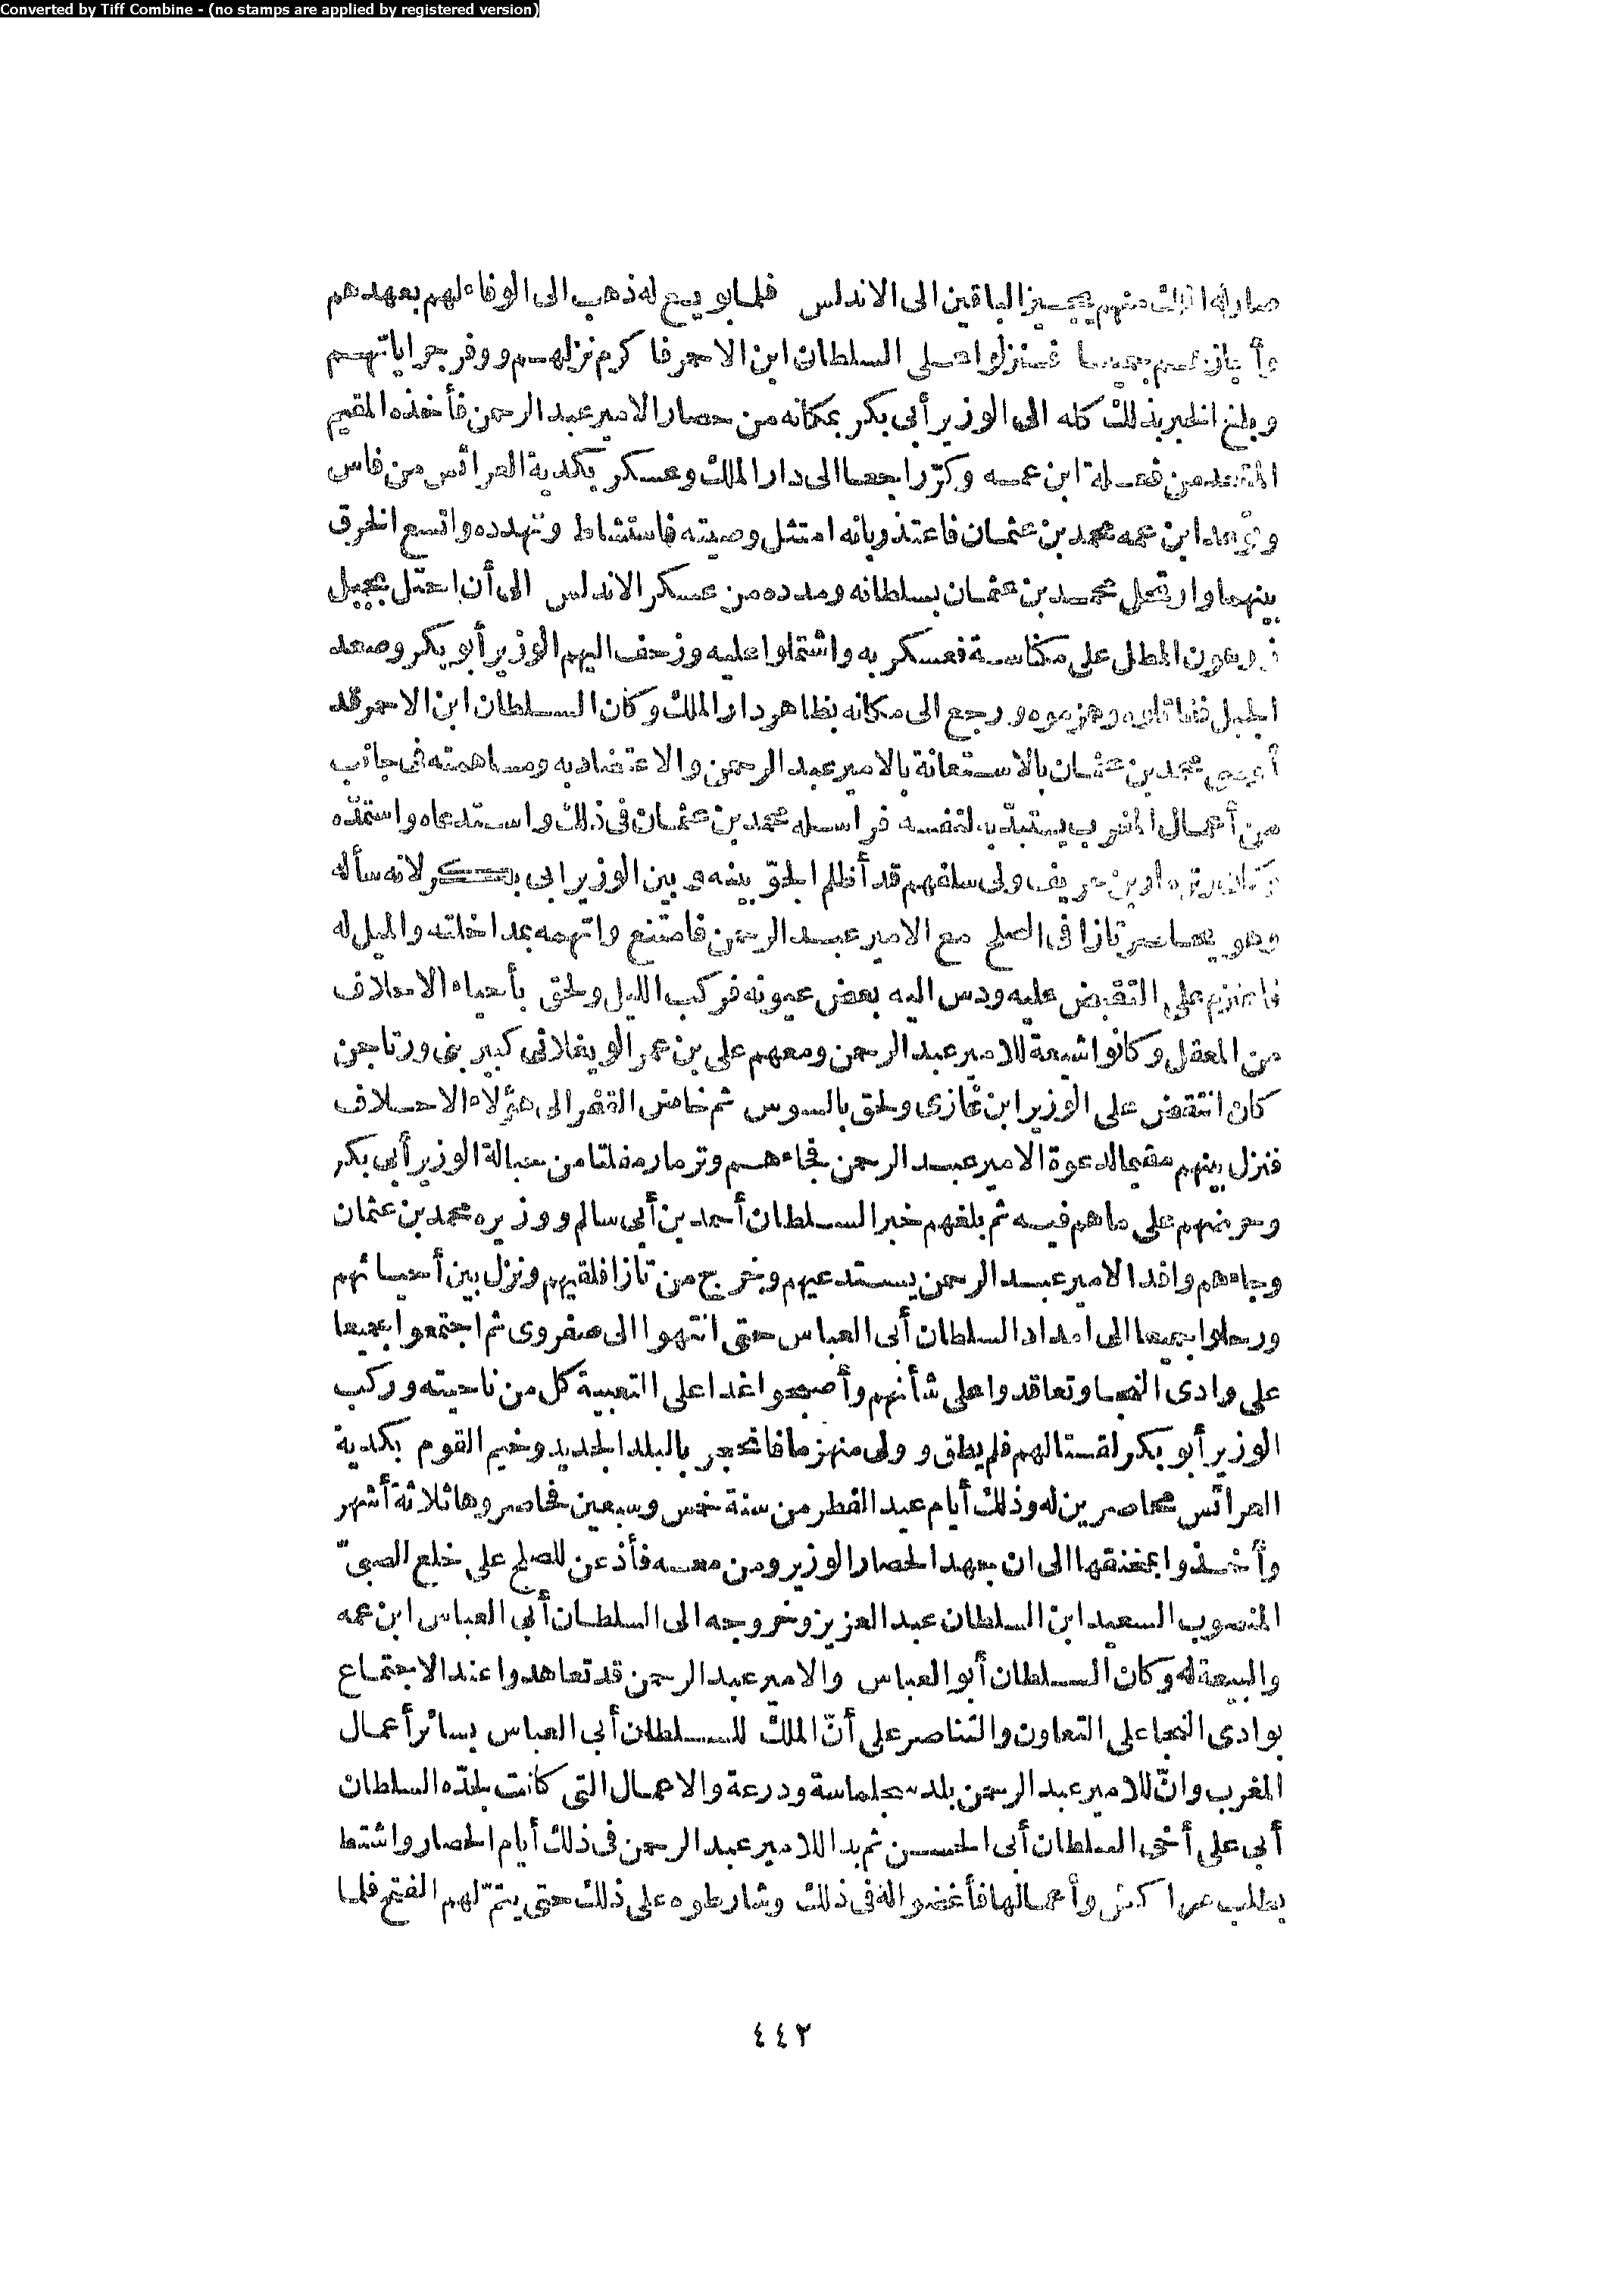 Converted by Tiff Combine - (no stamps are applied by registered version)
صار له الملك منهم يجيز الباقين الى الاندلس فلما بويع له ذهب الى الوفاء لهم بعهدهم
جميعا فنزلوا على السلطان ابن الاحمر فاكرم نزلهم ووفر جراياتهم
وبلغ الخبر بذلك كله الى الوزير أبى بكر بمكانه من حصار الامير عبد الرحمن فأخذه المقيم
المقعد من فعلة ابن عمه وكرّ راجعا الى دار الملك وعسكر بكدية العرائس من فاس
وتوعد ابن عمه محمد بن عثمان فاعتذر بانه امتثل وصيته فاستشاط وتهدده واتسع الخرق
بينهما وارتحل محمد بن عثمان بسلطانه ومدده من عسكر الاندلس الى أن احتل بجبل
زرهون المطل على مكناسة فعسكر به واشتملوا عليه وزحف اليهم الوزير أبو بكر وصعد
الجبل فقاتلوه وهزموه ورجع الى مكانه بظاهر دار الملك وكان السلطان ابن الاحمر قد
أوصى محمد بن عثمان بالاستعانة بالامير عبد الرحمن والاعتضاد به ومساهمته فى جانب
من أعمال المغرب يستبدّ به لنفسه فراسله محمد بن عثمان فى ذلك واستدعاه واستمدّه
وكان ونزمار بن عريف ولى سلفهم قد أظلم الجوّ بينه وبين الوزير ابى بكر لانه سأله
وهو يحاصر تازا فى الصلح مع الامير عبد الرحمن فامتنع واتهمه بمداخلته والميل له
فاعتزم على التقبض عليه ودس اليه بعض عيونه فركب الليل ولحق بأحياء الاحلاف
من المعقل وكانوا شيعة للامير عبد الرحمن ومعهم على بن عمر الويغلانى كبير بنى ورتاجن
كان انتقض على الوزير ابن غازى ولحق بالسوس ثم خاض القفر الى هؤلاء الاحلاف
فنزل بينهم مقيما لدعوة الامير عبد الرحمن فجاءهم ونزمار مفلتا من حبالة الوزير أبى بكر
وحرضهم على ما هم فيه ثم بلغهم خبر السلطان أحمد بن أبى سالم ووزيره محمد بن عثمان
وجاءهم وافد الامير عبد الرحمن يستدعيهم وخرج من تازا فلقيهم ونزل بين أحيائهم
ورحلوا جميعا الى امداد السلطان أبى العباس حتى انتهوا الى صفروى ثم اجتمعوا جميعا
على وادى النجا وتعاقدوا على شأنهم وأصبحوا غدا على التعبية كل من ناحيته وركب
الوزير أبو بكر لقتالهم فلم يطق وولى منهزما فانحجر بالبلد الجديد وخيم القوم بكدية
العرائس محاصرين له وذلك أيام عيد الفطر من سنة خمس وسبعين فحاصروها ثلاثة أشهر
وأخذوا بمخنقها الى ان جهد الحصار الوزير ومن معه فأذعن للصلح على خلع الصبىّ
المنصوب السعيد ابن السلطان عبد العزيز وخروجه الى السلطان أبى العباس ابن عمه
والبيعة له وكان السلطان أبو العباس والامير عبد الرحمن قد تعاهدوا عند الاجتماع
بوادى النجا على التعاون والتناصر على أنّ الملك للسلطان أبى العباس بسائر أعمال
المغرب وانّ للامير عبد الرحمن بلد سجلماسة ودرعة والاعمال التى كانت لجدّه السلطان
أبى على أخى السلطان أبى الحسن ثم بدا للامير عبد الرحمن فى ذلك أيام الحصار واشتط
بطلب مراكش وأعمالها فأغضوا له فى ذلك وشارطوه على ذلك حتى يتمّ لهم الفتح فلما
٤٤٢